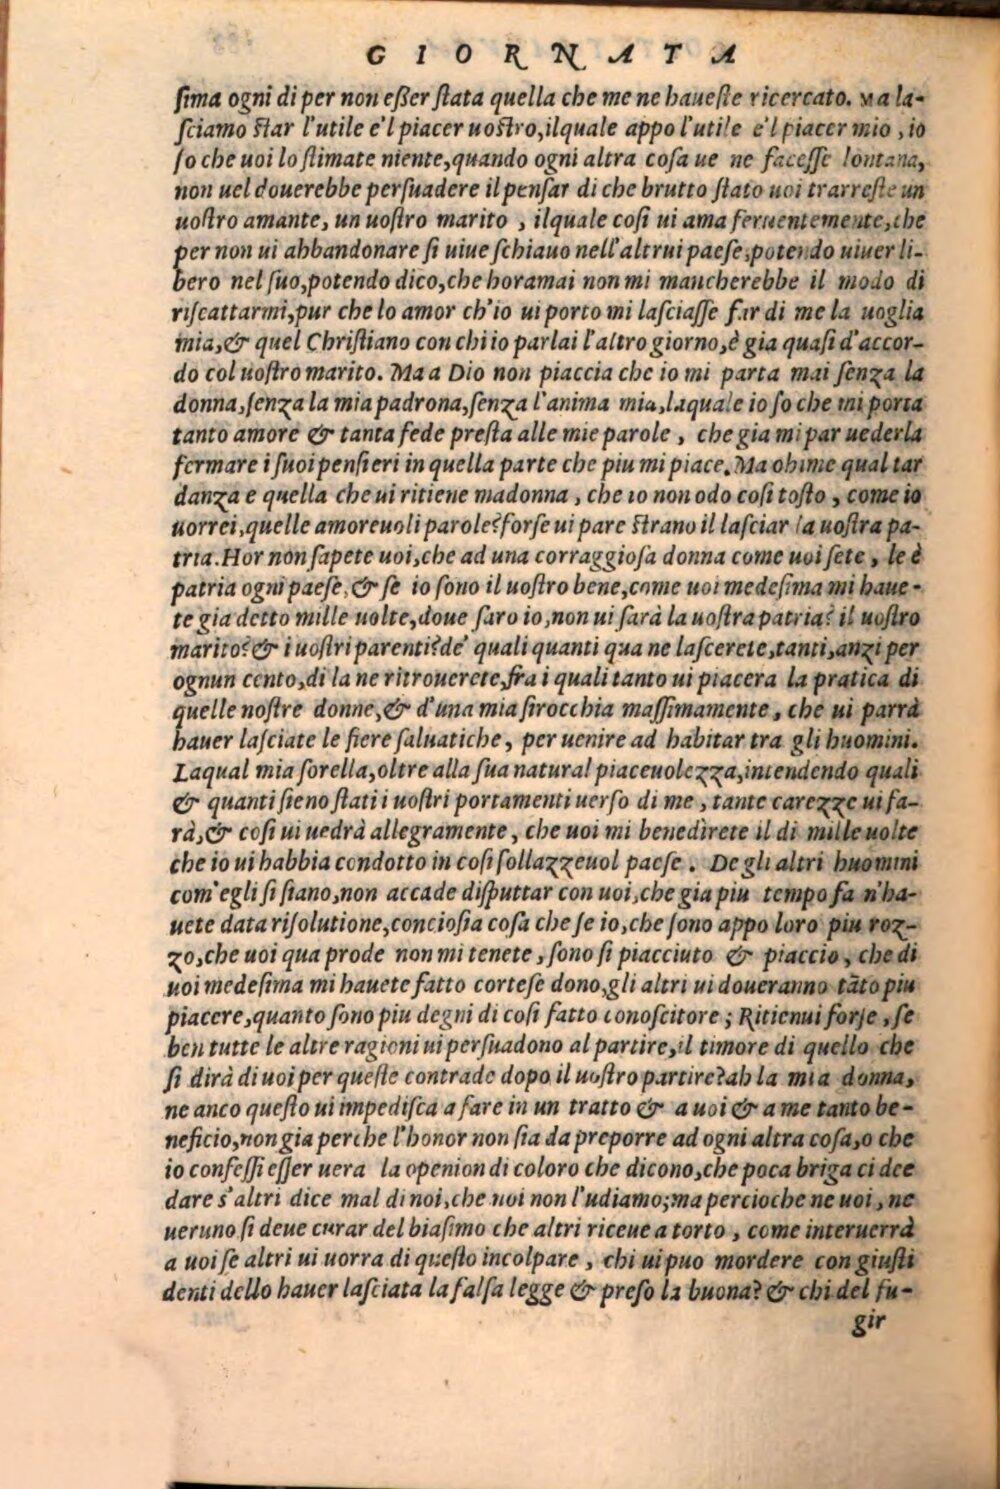 GIORNATA
ſima ogni di per non eßer ſtata quella che me ne haueſte ricercato. Ma la-
ſciamo ſtar l'utile e'l piacer uoſtro, ilquale appo l'utile e'l piacer mio, io
ſo che uoi lo ſtimate niente, quando ogni altra coſa ue ne faceſſe lontana,
non uel douerebbe perſuadere il penſar di che brutto ſtato uoi trarreſte un
uoſtro amante, un uoſtro marito, ilquale coſi ui ama feruentemente, che
per non ui abbandonare ſi uiue ſchiauo nell'altrui paeſe, potendo uiuer li-
bero nel ſuo, potendo dico, che horamai non mi mancherebbe il modo di
riſcattarmi, pur che lo amor ch'io ui porto mi laſciaſſe far di me la uoglia
mia, & quel Chriſtiano con chi io parlai l'altro giorno, è gia quaſi d'accor-
do col uoſtro marito. Ma a Dio non piaccia che io mi parta mai ſenza la
donna, ſenza la mia padrona, ſenza l'anima mia, laquale io ſo che mi porta
tanto amore & tanta fede preſta alle mie parole, che gia mi par uederla
fermare i ſuoi penſieri in quella parte che piu mi piace. Ma ohime qual tar
danza e quella che ui ritiene madonna, che io non odo coſi toſto, come io
uorrei, quelle amoreuoli parole? forſe ui pare ſtrano il laſciar la uoſtra pa-
tria. Hor non ſapete uoi, che ad una corraggioſa donna come uoi ſete, le è
patria ogni paeſe, & ſe io ſono il uoſtro bene, come uoi medeſima mi haue-
te gia detto mille uolte, doue ſaro io, non ui ſarà la uoſtra patria? il uoſtro
marito? & i uoſtri parenti? de' quali quanti qua ne laſcerete, tanti, anzi per
ognun cento, di la ne ritrouerete, fra i quali tanto ui piacera la pratica di
quelle noſtre donne, & d'una mia ſirocchia maſſimamente, che ui parrà
hauer laſciate le fiere ſaluatiche, per uenire ad habitar tra gli huomini.
Laqual mia ſorella, oltre alla ſua natural piaceuolezza, intendendo quali
& quanti ſieno ſtati i uoſtri portamenti uerſo di me, tante carezze ui fa-
rà, & coſi ui uedrà allegramente, che uoi mi benedirete il di mille uolte
che io ui habbia condotto in coſi ſollazzeuol paeſe. De gli altri huomini
com'egli ſi ſiano, non accade diſputtar con uoi, che gia piu tempo fa n'ha-
uete data riſolutione, concioſia coſa che ſe io, che ſono appo loro piu roz-
zo, che uoi qua prode non mi tenete, ſono ſi piacciuto & piaccio, che di
uoi medeſima mi hauete fatto corteſe dono, gli altri ui doueranno tãto piu
piacere, quanto ſono piu degni di coſi fatto conoſcitore; Ritienui forſe, ſe
ben tutte le altre ragioni ui perſuadono al partire, il timore di quello che
ſi dirà di uoi per queſte contrade dopo il uoſtro partire? ah la mia donna,
ne anco queſto ui impediſca a fare in un tratto & a uoi & a me tanto be-
neficio, non gia perche l'honor non ſia da preporre ad ogni altra coſa, o che
io confeſſi eſſer uera la openion di coloro che dicono, che poca briga ci dee
dare s'altri dice mal di noi, che noi non l'udiamo; ma percioche ne uoi, ne
ueruno ſi deue curar del biaſimo che altri riceue a torto, come interuerrà
a uoi ſe altri ui uorra di queſto incolpare, chi ui puo mordere con giuſti
denti dello hauer laſciata la falſa legge & preſo la buona? & chi del fu-
gir